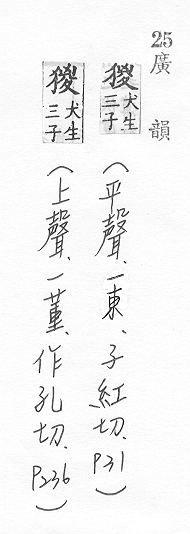 25廣韻
猣犬生三子(平聲、一東、子紅切、P31)
猣犬生三子(上聲、一董、作孔切、P236)